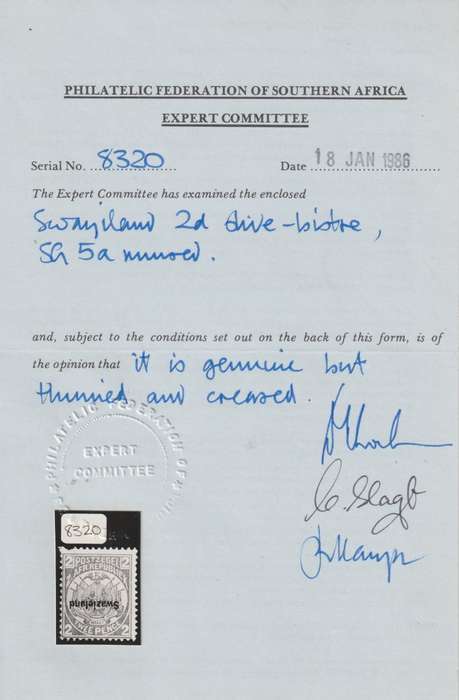 PHILATELIC FEDERATION OF SOUTHERN AFRICA
EXPERT COMMITTEE
Serial No. 8320 Date 18 JAN 1986
The Expert Committee has examined the enclosed
Swaziland 2d olive-bistre,
SG 5a unused.
and, subject to the conditions set out on the back of this form, is of
the opinion that it is genuine but
thinned and creased.
PHILATELIC FEDERATION OF
EXPERT
COMMITTEE
C. Slagt
8320
2 POSTZEGEL 2
AFR. REPUBLIEK
Swazieland
2 TWEE PENCE 2